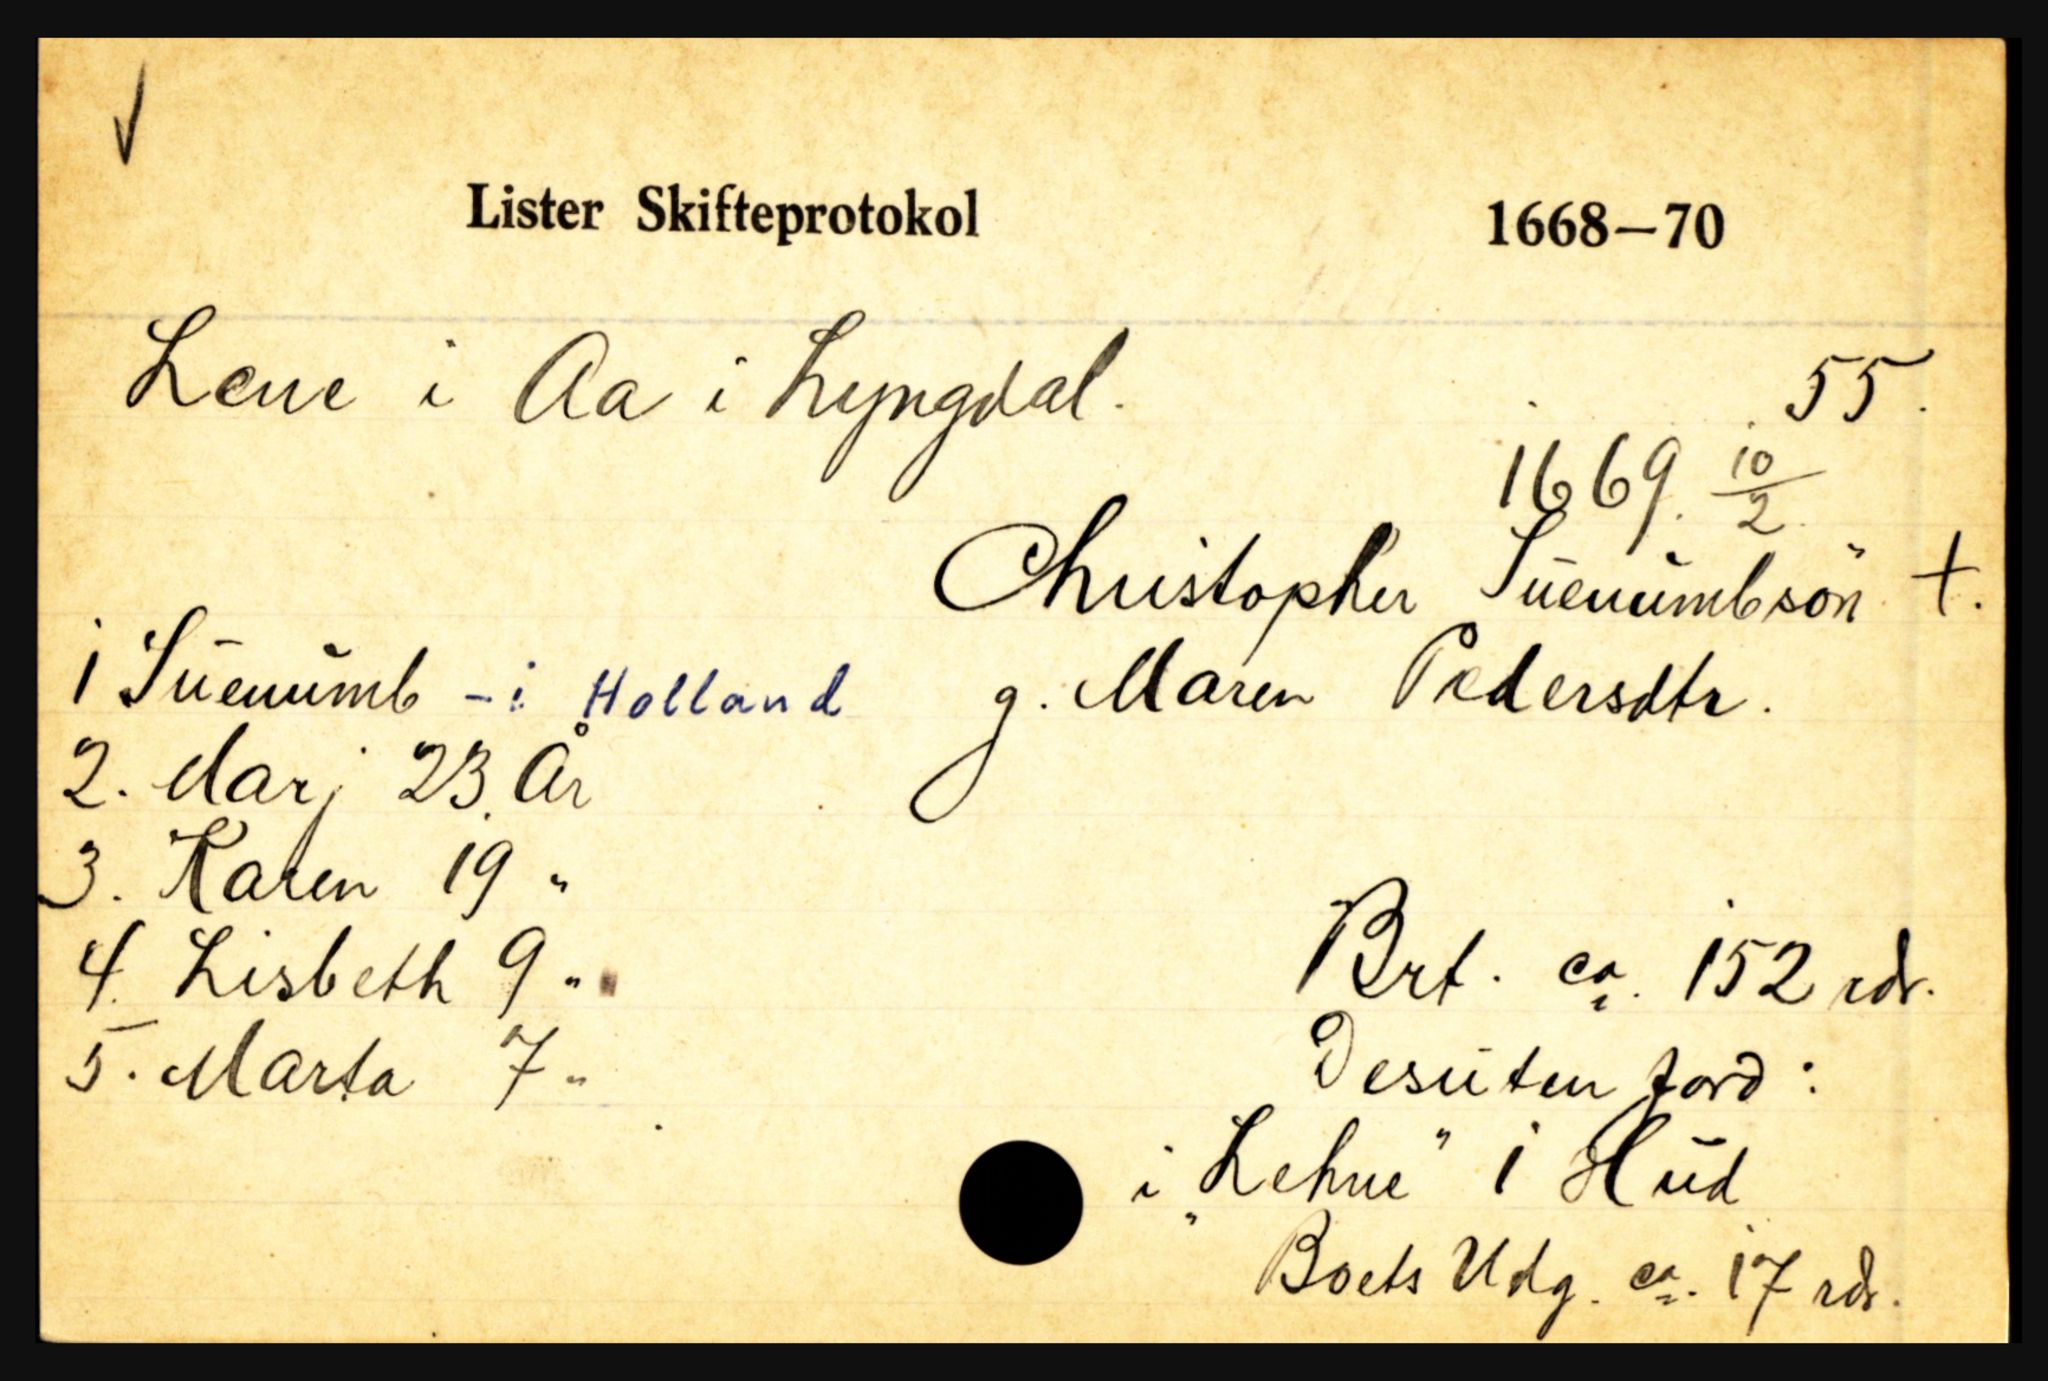 Lister Skifteprotokol 1668—70
Lene i Aa i Lyngdal. 55.
1669. 10/2.
Christopher Suenumbsön +.
g. Maren Pedersdtr.
1 Suenumb - i Holland
2. Marj 23 År
3. Karen 19 "
4. Lisbeth 9 "
5. Marta 7 "
Brt. ca. 152 rdr.
Desuten jord:
i "Lehne" 1 Hud
Boets Udg. ca. 17 rdr.